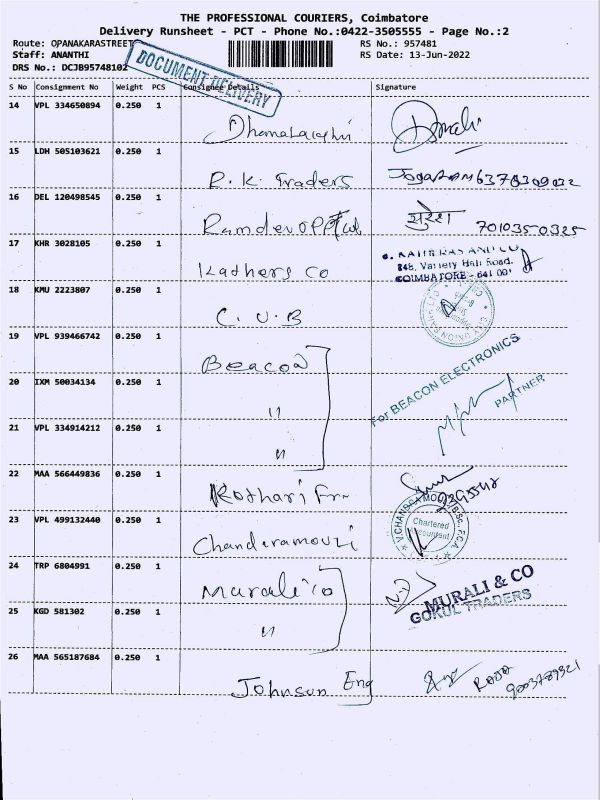 THE PROFESSIONAL COURIERS, Coimbatore
Delivery Runsheet - PCT - Phone No.:0422-3505555 - Page No.:2
Route: OPANAKARASTREET RS No.: 957481
Staff: ANANTHI RS Date: 13-Jun-2022
DRS No.: DCJB95748102
DOCUMENT DELIVERY
S No Consignment No Weight PCS Consignee Details Signature
14 VPL 334650894 0.250 1
15 LDH 505103621 0.250 1 R.K. Traders
16 DEL 120498545 0.250 1 सुरेश 7010350325
17 KHR 3028105 0.250 1 Kathers Co
848, Variety Hall Road.
COIMBATORE - 641 001
18 KMU 2223807 0.250 1 C.U.B
19 VPL 939466742 0.250 1 Beacon
For BEACON ELECTRONICS
PARTNER
20 IXM 50034134 0.250 1 "
21 VPL 334914212 0.250 1 "
22 MAA 566449836 0.250 1 Kothari
23 VPL 499132440 0.250 1
V.CHANDRAMOULI B.Sc., F.C.A.
Chartered
Accountant
24 TRP 6804991 0.250 1 Murali co
MURALI & CO
GOKUL TRADERS
25 KGD 581302 0.250 1 "
26 MAA 565187684 0.250 1 Johnson Eng